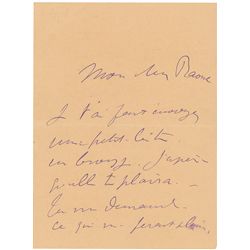 Mon cher Raoul
Je t'ai fait envoyer
une petite boîte
en bronze. J'espère
qu'elle te plaira.
Tu me demandes
ce qui me ferait plaisir,